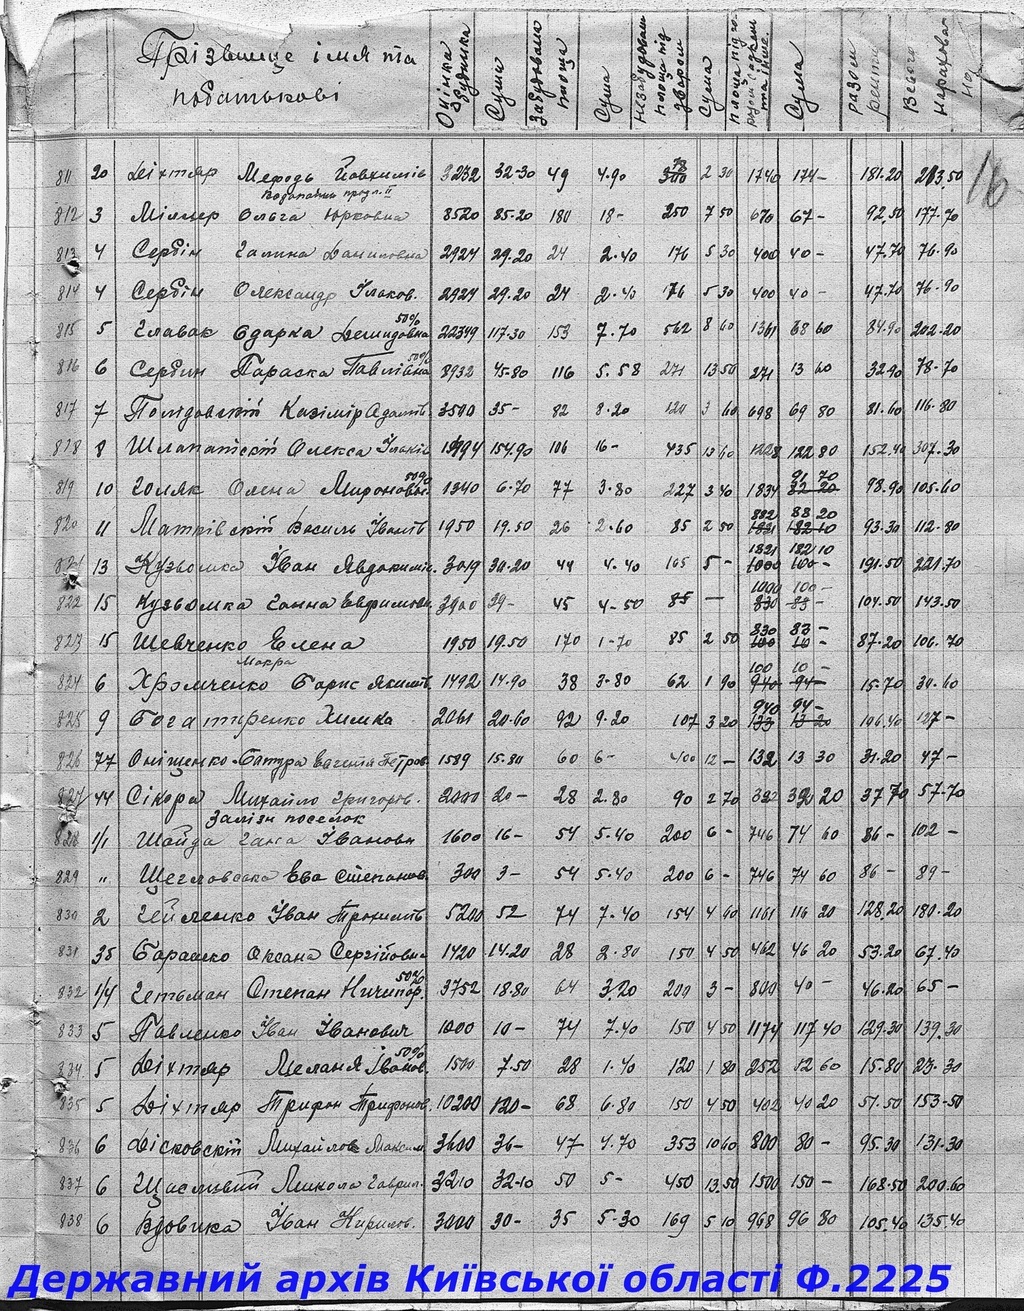 Прізвище імя та
податькові
Оцінка будинка
Сума
Забудована площа
Сума
незабудован площа під двором
Сума
Сума
разом ренти
Всього нарахован
16
811 20 Діхтяр Мефодь Йовхимів 3232 32-30 49 4.90 78 300 2 30 1740 174- 181.20 213.50
812 3 Міллер Ольга Юрковна 8520 85-20 180 18- 250 7 50 670 67- 92.50 177.70
813 4 Сербін Галина Даниловна 2924 29.20 24 2.40 176 5 30 400 40- 47.70 76.90
814 4 Сербін Олександр Ілаков. 2924 29.20 24 2.40 176 5 30 400 40- 47.70 76.90
50%
815 5 Главак Одарка Демидовна 22349 117.30 153 7.70 562 8 60 1361 68 60 84.90 202.20
50%
816 6 Сердин Параска Павлівна 8932 45-80 116 5.58 271 13 50 271 13 60 32.90 78-70
817 7 Казімір Адамів 3500 35- 82 8-20 120 3 60 698 69 80 81.60 116.80
818 8 Олекса 154.90 106 16- 435 13 60 1228 122 80 152.40 307.30
50% 91 70
819 10 Голяк Олена Миронов. 1340 6-70 77 3.80 227 3 40 1834 32 20 98.90 105.60
882 88 20
820 11 Матвівскій Василь Іванів 1950 19.50 26 2.60 85 2 50 1821 182 10 93.30 112.80
1821 182 10
821 13 Кузьомка Іван Явдокимів. 3019 30.20 44 4.40 165 5- 1000 100- 191.50 221.70
1000 100-
822 15 Кузьомка Ганна Евфимовн. 2900 29- 45 4-50 85 — 830 83- 104.50 143.50
830 83-
823 15 Шевченко Елена 1950 19.50 170 1-70 85 2 50 100 10- 87-20 106.70
Мокра
100 10-
824 6 Хромченко Борис Якимів. 1492 14.90 38 3-80 62 1 90 940 94- 15-70 30.60
940 94-
825 9 Богатиренко Химка 2061 20.60 92 9.20 107 3 20 133 13 20 106.40 127-
826 77 Оніщенко-Батура Евгенія Петров. 1589 15.80 60 6- 400 12- 132 13 30 31.20 47-
827 44 Сікора Михайло Григоров. 2000 20- 28 2.80 90 2 70 322 32 20 37 70 57.70
Залізн поселок
828 1/1 Шайда Ганна Івановн 1600 16- 54 5.40 200 6- 746 74 60 86- 102-
829 " Щегловська Ева Степанов. 300 3- 54 5.40 200 6- 746 74 60 86- 89-
830 2 Гейленко Іван Трохимів 5200 52- 74 7.40 154 4 60 1161 116 20 128.20 180.20
831 35 Барашко Оксана Сергійовна 1420 14.20 28 2.80 150 4 50 462 46 20 53.20 67.40
50%
832 1/4 Гетьман Степан Ничипор. 3752 18.80 64 3.20 200 3- 800 40- 46.20 65-
833 5 Павленко Іван Іванович 1000 10- 74 7.40 150 4 50 1174 117 40 129.30 139.30
50%
834 5 Діхтяр Меланя Іванов. 1500 7.50 28 1.40 120 1 80 252 12 60 15.80 23.30
835 5 Діхтяр Трифон Трифонов. 10200 120- 68 6.80 150 4 50 402 40 20 51.50 153-50
836 6 Дісковскій Михайлов Максим. 3600 36- 47 4.70 353 10 60 800 80- 95.30 131.30
837 6 Щасливий Микола Гаврил. 3210 32-10 50 5- 450 13.50 1500 150- 168.50 200.60
838 6 Вдовика Іван Кирилов. 3000 30- 35 5-30 169 5 10 968 96 80 105.40 135.40
Державний архів Київської області Ф.2225